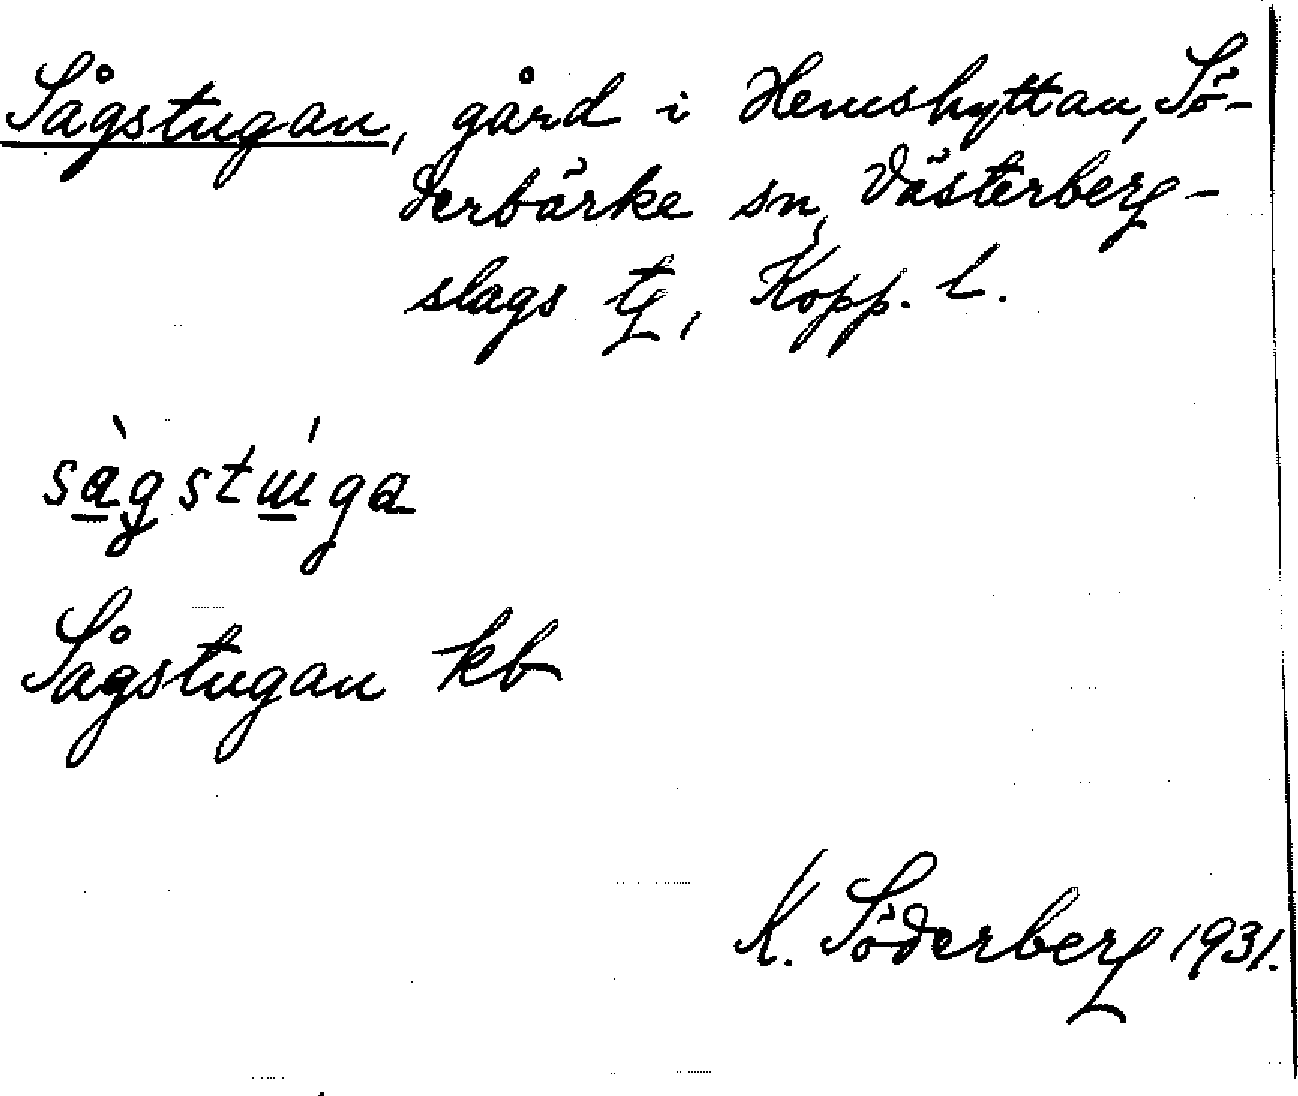 Sågstugan, gård i Hemshyttan, Sö-
derbärke sn, Västerberg-
slags tg, Kopp. l.
sàgstɯ́ga
Sågstugan kb
K. Söderberg 1931.